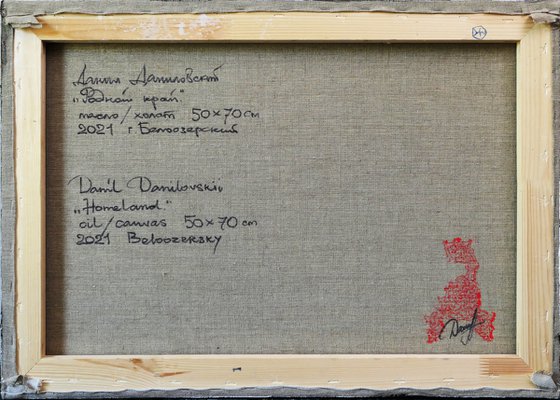 Данил Даниловский
„Родной край."
масло/холст 50×70 см
2021 г Белоозерский
Danil Danilovskii
„Homeland."
oil/canvas 50×70 cm
2021 Beloozersky